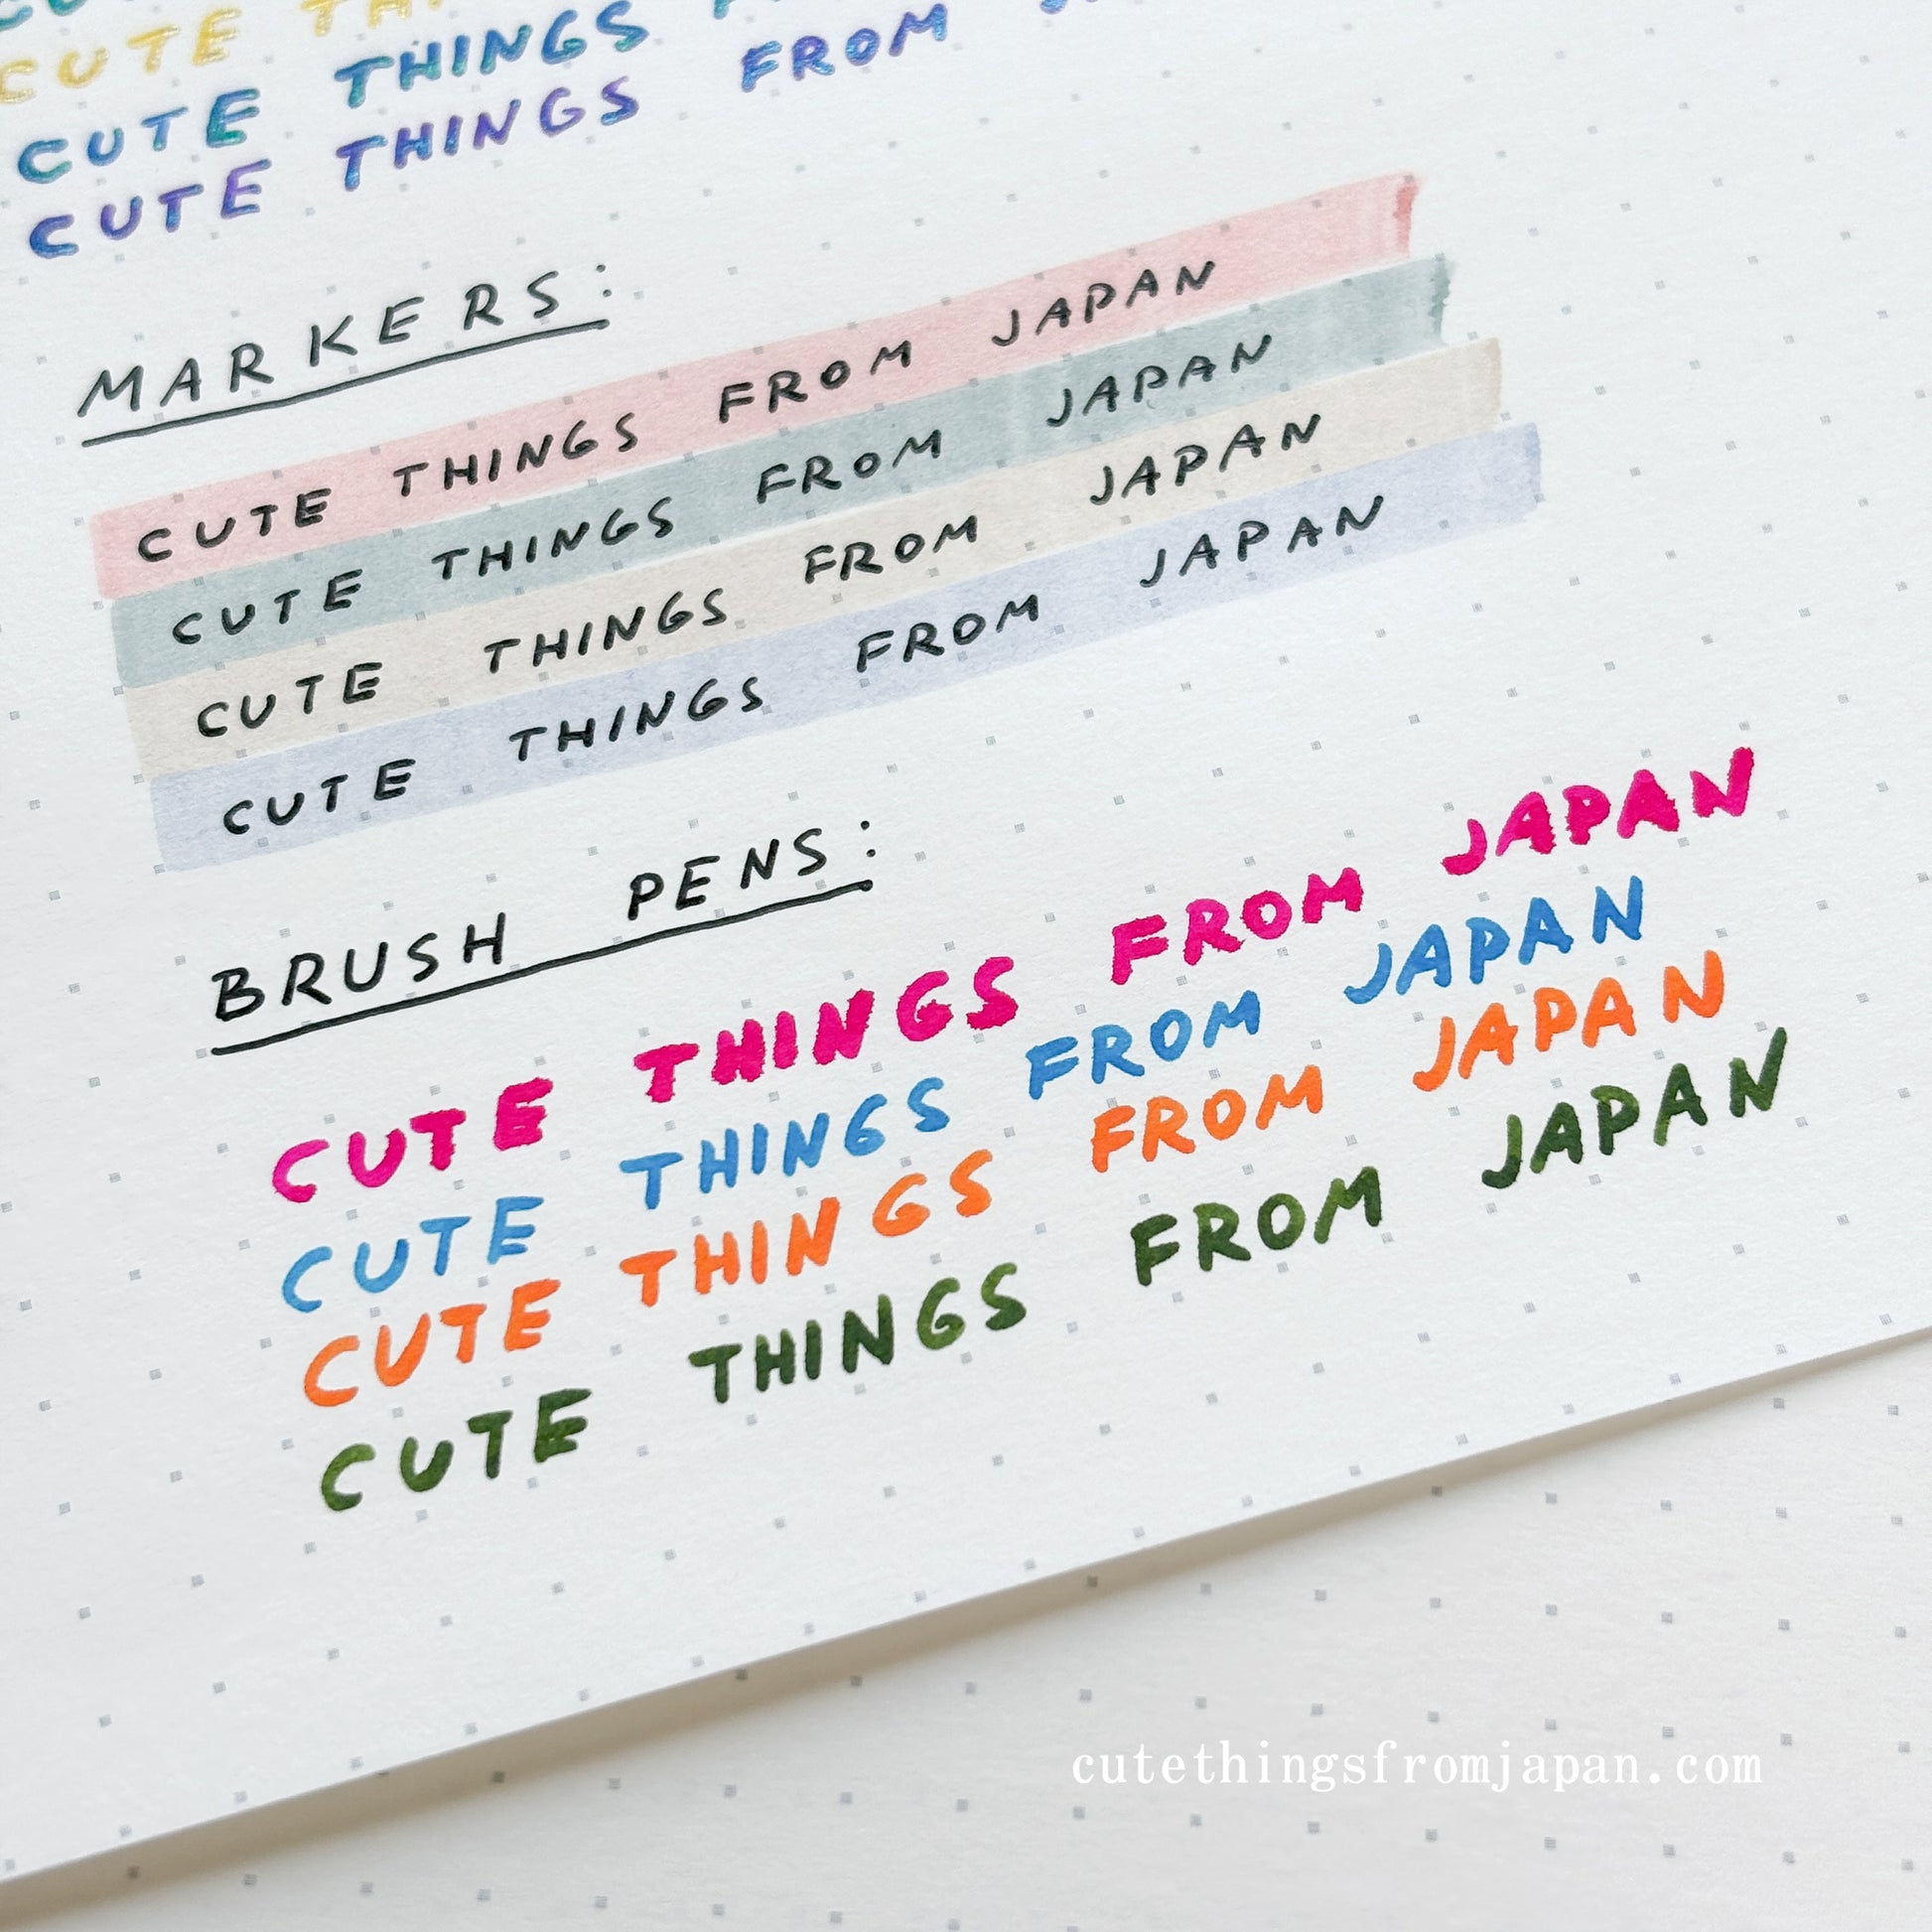 CUTE
CUTE THINGS
CUTE THINGS FROM
MARKERS:
CUTE THINGS FROM JAPAN
CUTE THINGS FROM JAPAN
CUTE THINGS FROM JAPAN
CUTE THINGS FROM JAPAN
BRUSH PENS:
CUTE THINGS FROM JAPAN
CUTE THINGS FROM JAPAN
CUTE THINGS FROM JAPAN
CUTE THINGS FROM JAPAN
cutethingsfromjapan.com